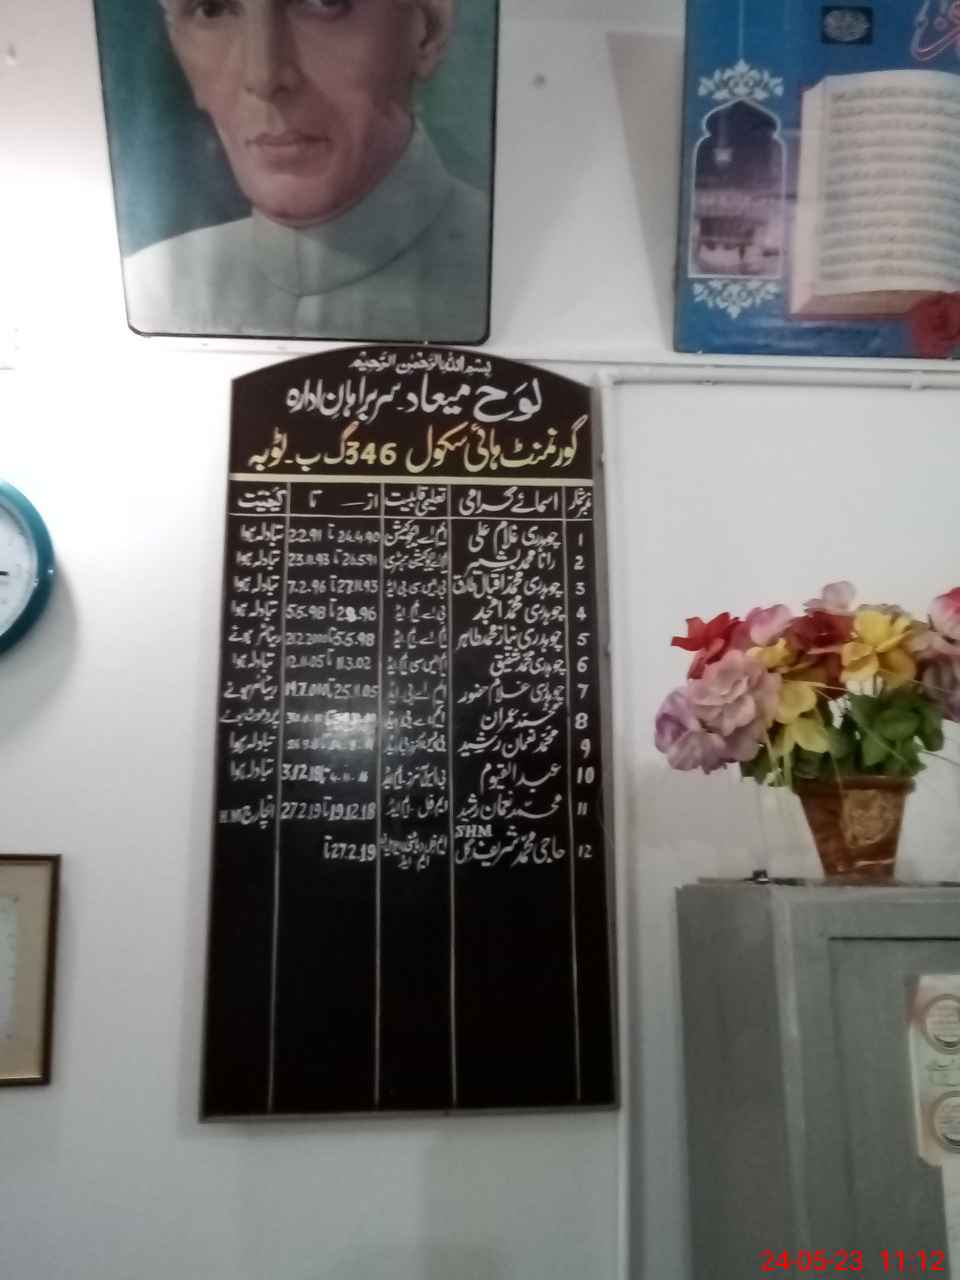 بِسْمِ اللهِ الرَّحْمٰنِ الرَّحِيْمِ
لوَح میعاد۔ سربراہانِ ادارہ
گورنمنٹ ہائی سکول 346 گ ب۔ ٹوبہ
نمبر شمار اسمائے گرامی تعلیمی قابلیت از — تا کیفیت
1 چوہدری غلام علی ایم اے ایجوکیشن 24.4.90 تا 2.2.91 تبادلہ ہوا
2 رانا محمد بشیر تا 23.11.93 تبادلہ ہوا
3 چوہدری محمد اقبال طارق بی ایس سی بی ایڈ 27.11.93 تا 7.2.96 تبادلہ ہوا
4 چوہدری محمد امجد بی اے ایم ایڈ تا 5.5.98 تبادلہ ہوا
5 چوہدری نیاز محمد طاہر ایم اے ایم ایڈ 5.5.98 تا 21.2.2001 ریٹائر ہوئے
6 چوہدری محمد شفیق ایم ایس سی ایم ایڈ 11.3.02 تا 12.11.05 تبادلہ ہوا
7 چوہدری غلام حضور ایم اے بی ایڈ 25.11.05 تا ریٹائر ہوئے
8 محمد عمران ایم اے بی ایڈ پروموٹ ہوئے
9 محمد نعمان رشید تبادلہ ہوا
10 عبدالقیوم بی ایس آنرز۔ ایم ایڈ تا 3.12.18 تبادلہ ہوا
11 محمد نعمان رشید ایم فل۔ ایم ایڈ 19.12.18 تا 27.2.19 انچارج H.M
SHM
12 حاجی محمد شریف گل ایم فل ایم ایڈ 27.2.19 تا
24-05-23 11:12